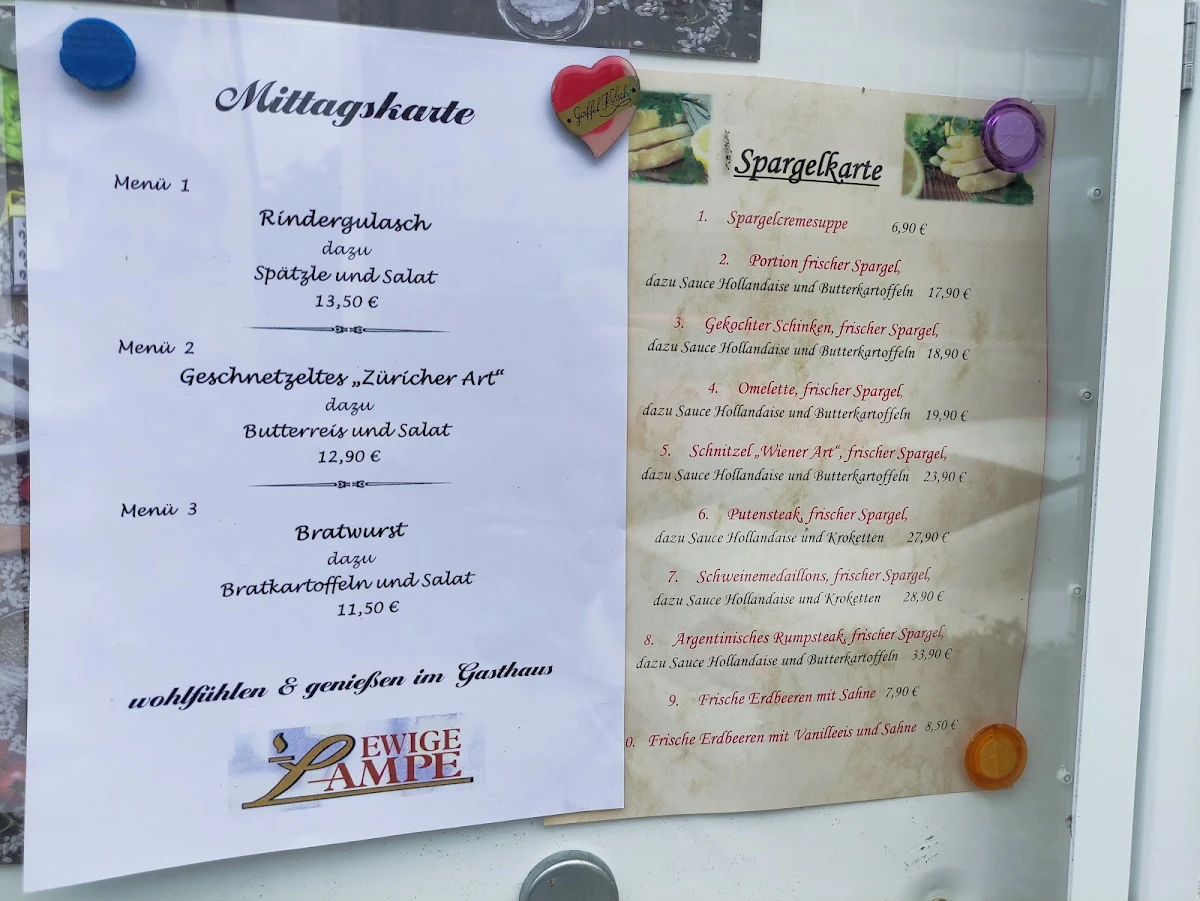 Mittagskarte
Menü 1
Rindergulasch
dazu
Spätzle und Salat
13,50 €
Menü 2
Geschnetzeltes „Züricher Art“
dazu
Butterreis und Salat
12,90 €
Menü 3
Bratwurst
dazu
Bratkartoffeln und Salat
11,50 €
wohlfühlen & genießen im Gasthaus
EWIGE
LAMPE
Gaffel Kölsch
Spargelkarte
1. Spargelcremesuppe 6,90 €
2. Portion frischer Spargel,
dazu Sauce Hollandaise und Butterkartoffeln 17,90 €
3. Gekochter Schinken, frischer Spargel,
dazu Sauce Hollandaise und Butterkartoffeln 18,90 €
4. Omelette, frischer Spargel,
dazu Sauce Hollandaise und Butterkartoffeln 19,90 €
5. Schnitzel „Wiener Art“, frischer Spargel,
dazu Sauce Hollandaise und Butterkartoffeln 23,90 €
6. Putensteak, frischer Spargel,
dazu Sauce Hollandaise und Kroketten 27,90 €
7. Schweinemedaillons, frischer Spargel,
dazu Sauce Hollandaise und Kroketten 28,90 €
8. Argentinisches Rumpsteak, frischer Spargel,
dazu Sauce Hollandaise und Butterkartoffeln 33,90 €
9. Frische Erdbeeren mit Sahne 7,90 €
0. Frische Erdbeeren mit Vanilleeis und Sahne 8,50 €